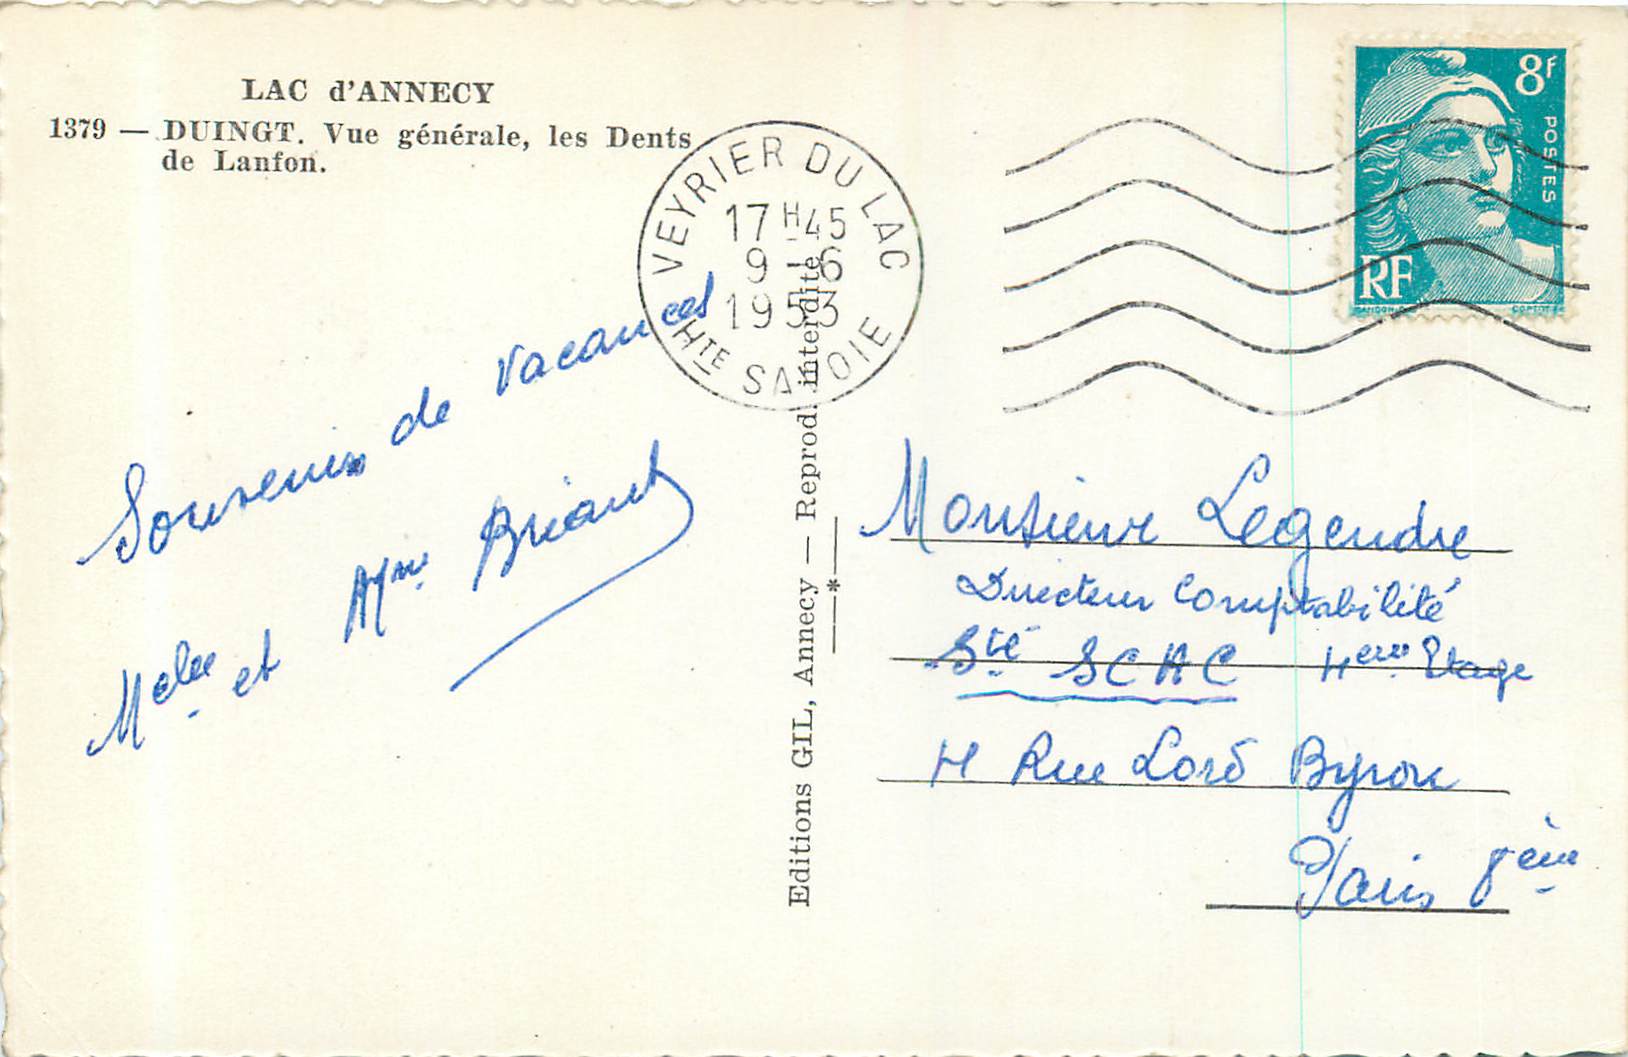 LAC d'ANNECY
1379 — DUINGT. Vue générale, les Dents
de Lanfon.
VEYRIER DU LAC
17 H 45
9 - 6
1953
HTE SAVOIE
8F
POSTES
RF
Souvenir de Vacances
et Briault
Editions GIL, Annecy — Reprod. interdite
*
Monsieur Legendre
Directeur Comptabilité
Sté SCAC 4eme Etage
4 Rue Lord Byron
Paris 8ème